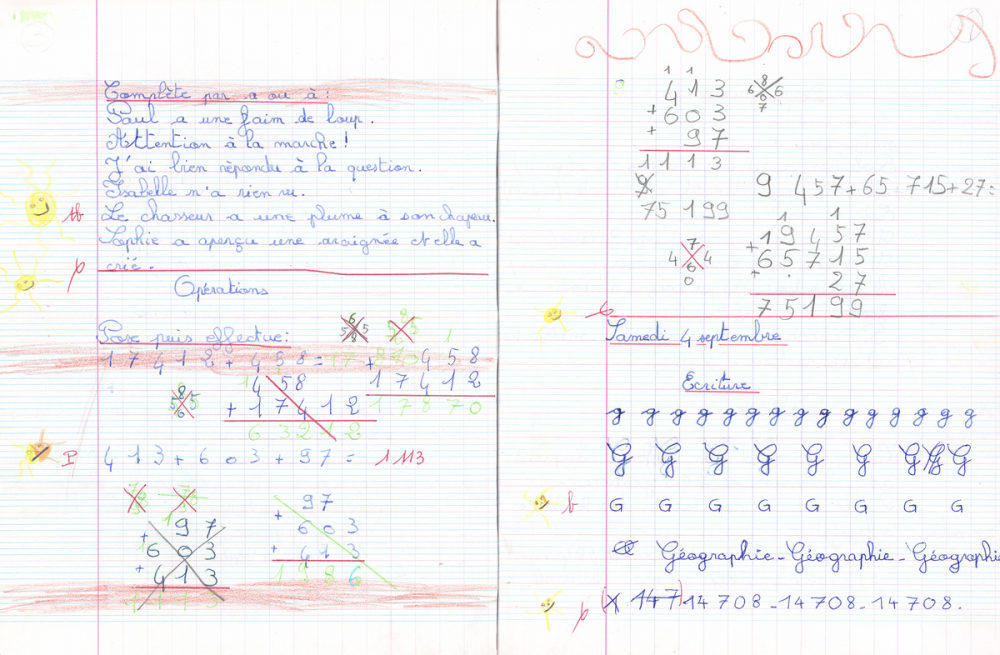 Complète par a ou à :
Paul a une faim de loup.
Attention à la marche !
J'ai bien répondu à la question.
Isabelle n'a rien vu.
tb Le chasseur a une plume à son chapeau.
Sophie a aperçu une araignée et elle a
crié.
Opérations
Pose puis effectue :
17 412 + 458 = 17 870
458
+ 17 412
63212
458
+ 17 412
17870
413 + 603 + 97 = 1113
97
+ 603
+ 413
1113
97
+ 603
+ 413
1 1
413
+ 603
+ 97
1113
9 457 + 65 715 + 27 =
75 199
1 1
19 457
+ 65 715
+ 27
75199
Samedi 4 septembre
Ecriture
g g g g g g g g g g g g g g g
G G G G G G G G G
b G G G G G G G G
Géographie - Géographie - Géographie
(X 147) 14 708 - 14 708 - 14 708.